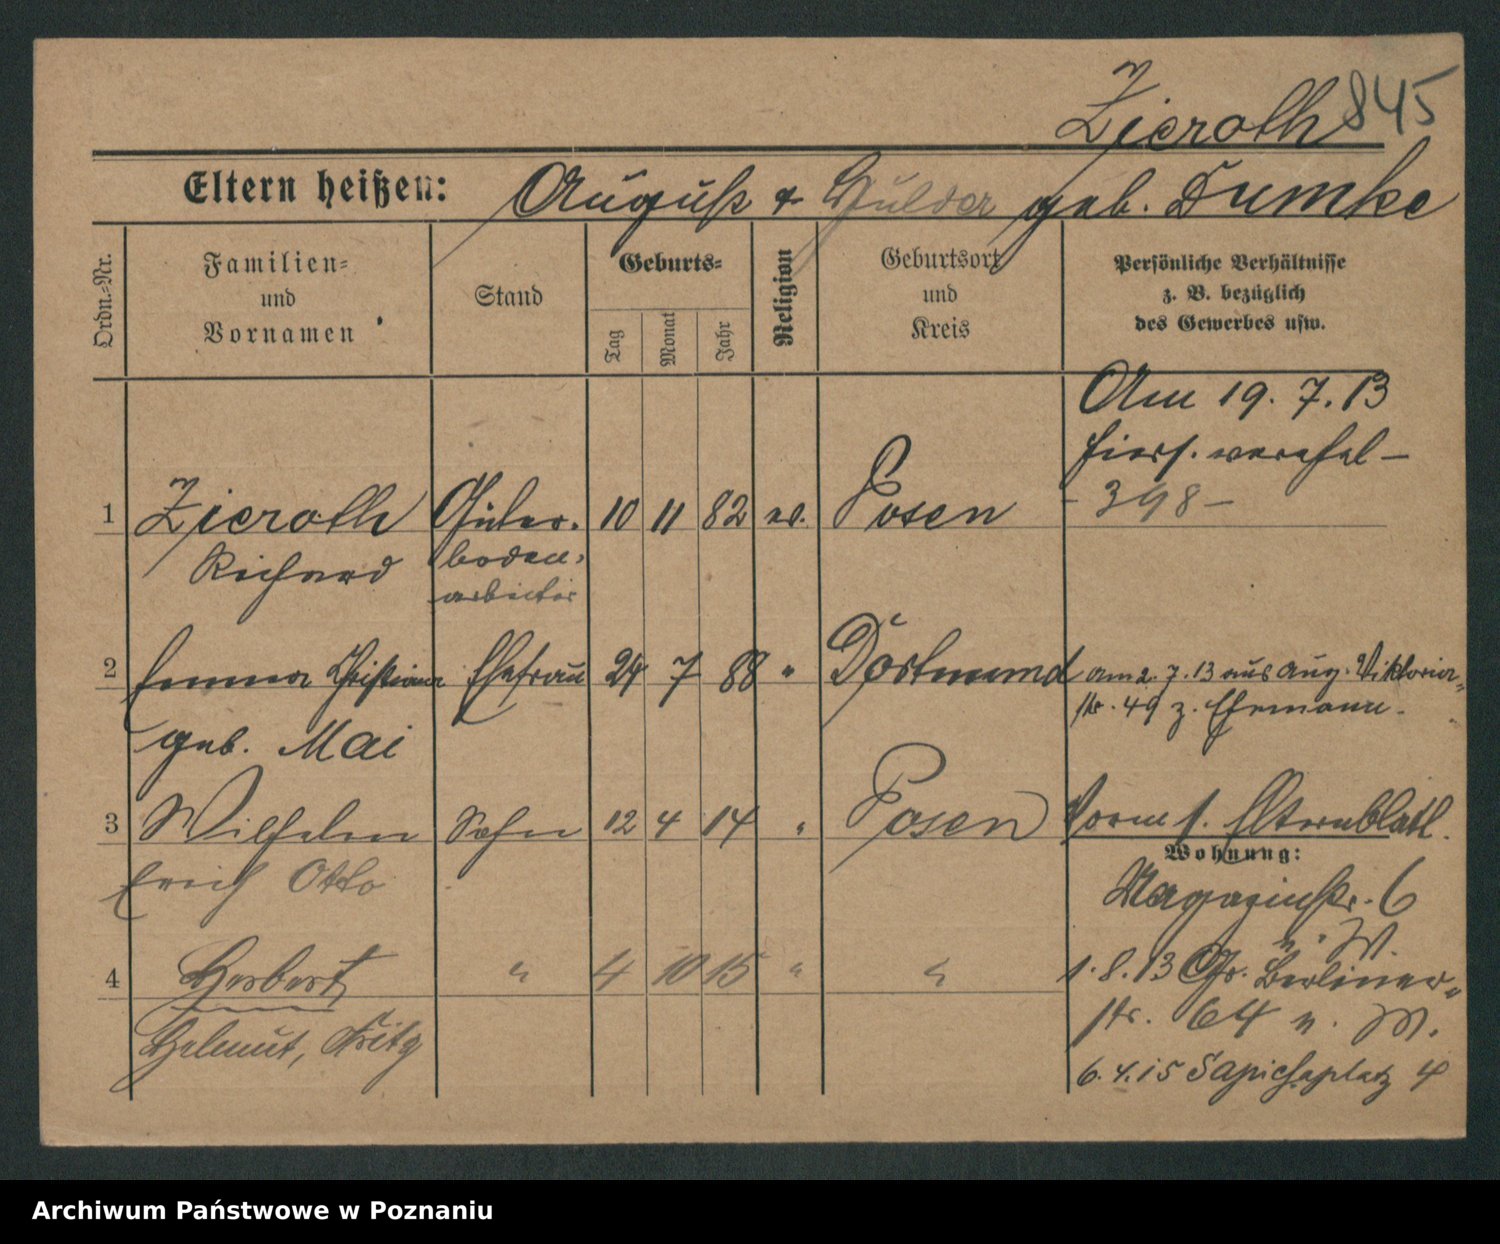 Zieroth 845
Eltern heißen: August & Hulda geb. Dumke
Ordn.=Nr.
Familien=
und
Vornamen
Stand
Geburts=
Tag
Monat
Jahr
Religion
Geburtsort
und
Kreis
Persönliche Verhältnisse
z. B. bezüglich
des Gewerbes usw.
Am 19. 7. 13
hiers. verehel-
- 398 -
1 Zieroth Güter- 10 11 82 ev. Posen
Richard boden-
arbeiter
2 Emma Christiane Ehefrau 24 7 88 " Dortmund am 2. 7. 13 aus Aug. Viktoria-
str. 49 z. Ehemann.
geb. Mai
3 Wilhelm Sohn 12 4 14 " Posen Vorm s. Elternblatt.
Erich Otto
Wohnung:
Magazinstr. 6
v. W.
4 Herbert " 4 10 15 " " 1. 8. 13 Gr. Berliner-
str. 64 v. M.
Helmut, Fritz
6. 4. 15 Sapiehaplatz 4
Archiwum Państwowe w Poznaniu